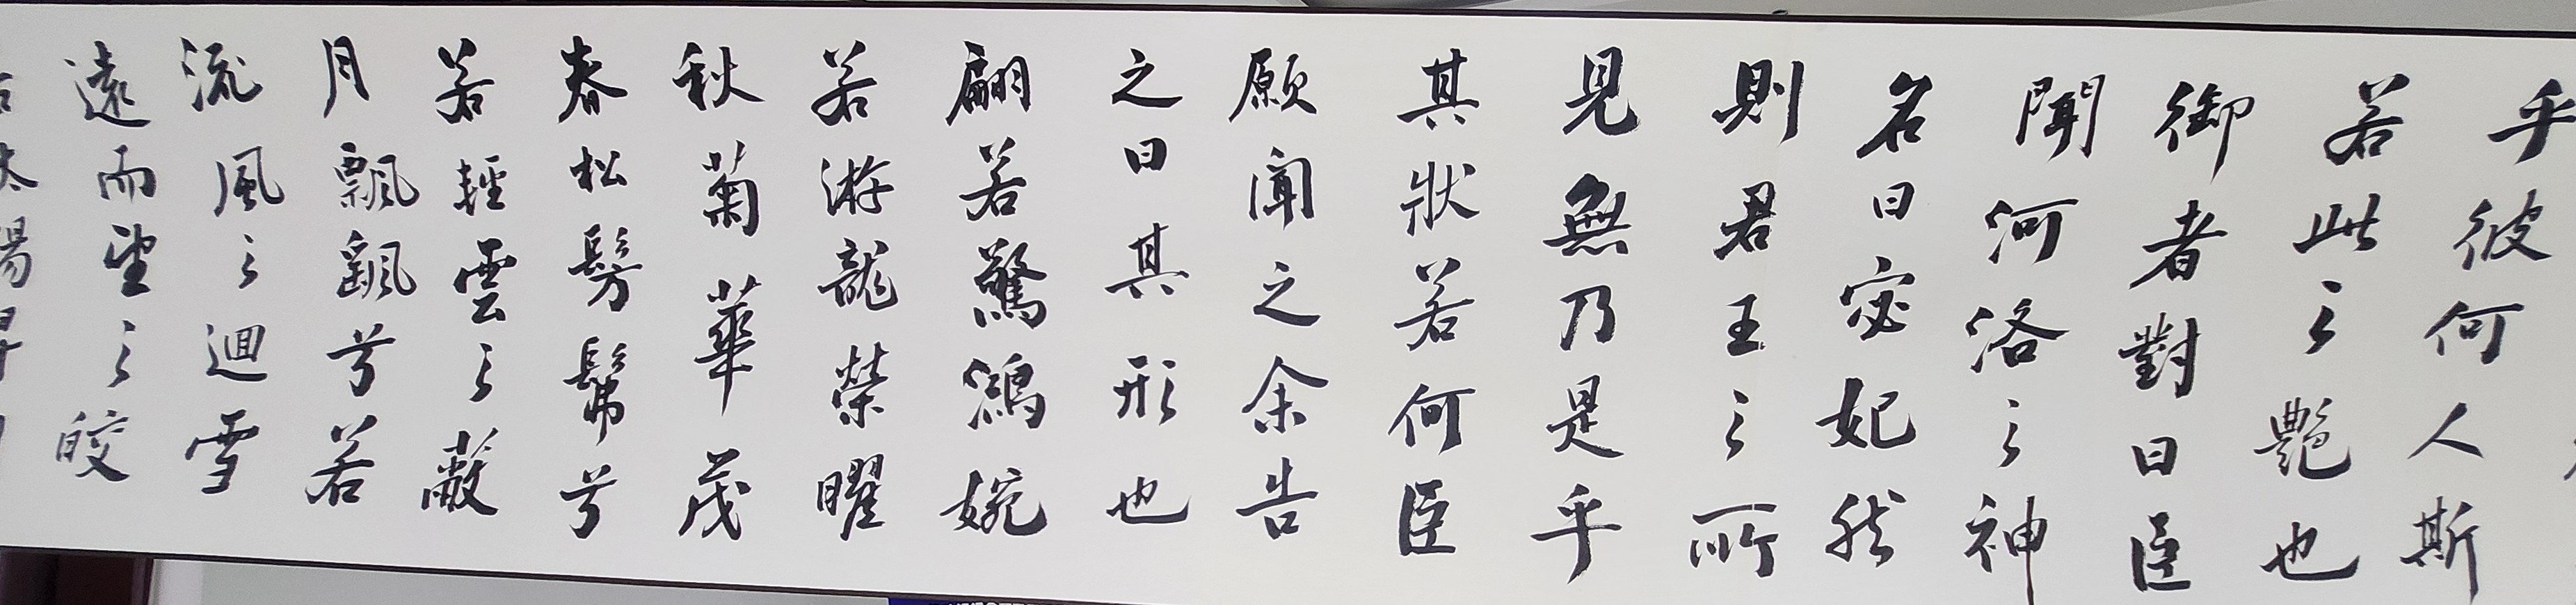 乎彼何人斯
若此之艷也
御者對曰臣
聞河洛之神
名曰宓妃然
則君王之所
見無乃是乎
其狀若何臣
願聞之余告
之曰其形也
翩若驚鴻婉
若游龍榮曜
秋菊華茂
春松髣髴兮
若輕雲之蔽
月飄颻兮若
流風之迴雪
遠而望之皎
若太陽昇